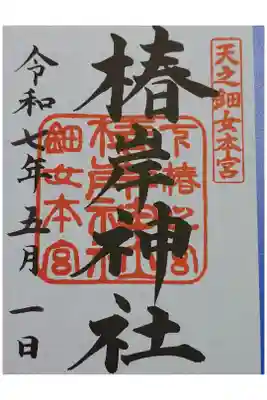 天之鈿女本宮
椿岸神社
令和七年五月一日
椿岸神社
鈿女本宮